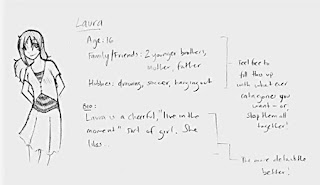 Laura
Age: 16
Family/Friends: 2 younger brothers,
mother, father
Hobbies: drawing, soccer, hanging out
Bio:
Laura is a cheerful, "live in
the moment" sort of girl. She
likes...
Feel free to
fill this up
with what ever
categories you
want - or
skip them all
together!
The more detail the
better!